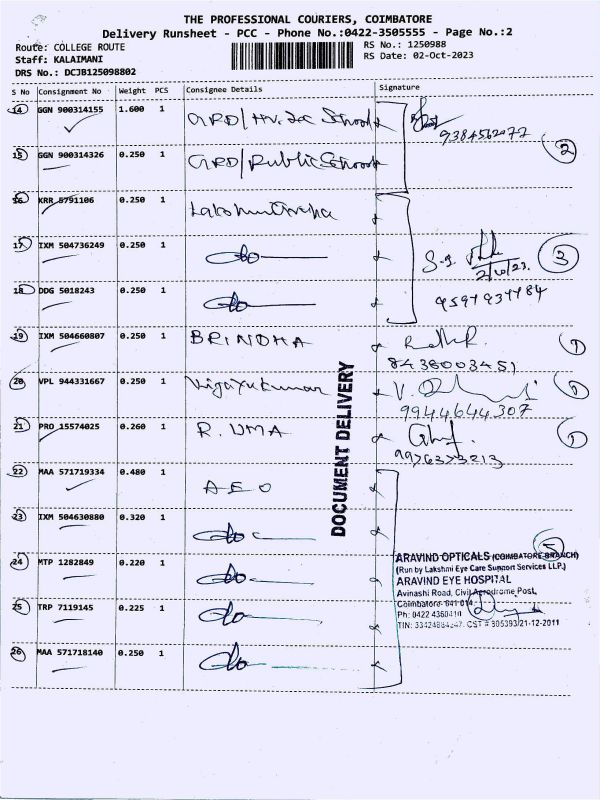 THE PROFESSIONAL COURIERS, COIMBATORE
Delivery Runsheet - PCC - Phone No.:0422-3505555 - Page No.:2
Route: COLLEGE ROUTE
RS No.: 1250988
Staff: KALAIMANI
RS Date: 02-Oct-2023
DRS No.: DCJB125098802
S No Consignment No Weight PCS Consignee Details Signature
14 GGN 900314155 1.600 1 GRD/Hr. Sec School
9384562077
2
15 GGN 900314326 0.250 1 GRD/Public School
16 KRR 8791106 0.250 1
17 IXM 504736249 0.250 1 do
2/10/23
3
18 DDG 5018243 0.250 1 do
9597937784
19 IXM 504660807 0.250 1 BRINDHA
8438003451
1
20 VPL 944331667 0.250 1 Vijayakumar
9944644307
1
21 PRO 15574025 0.260 1 R. UMA
9976373213
1
DOCUMENT DELIVERY
22 MAA 571719334 0.480 1 AEO
23 IXM 504630880 0.320 1 do
5
24 MTP 1282849 0.220 1 do
25 TRP 7119145 0.225 1 do
26 MAA 571718140 0.250 1 do
ARAVIND OPTICALS (COIMBATORE BRANCH)
(Run by Lakshmi Eye Care Support Services LLP.)
ARAVIND EYE HOSPITAL
Avinashi Road, Civil Aerodrome Post,
Coimbatore-641 014
Ph: 0422 4360410
TIN: CST # 805393/21-12-2011